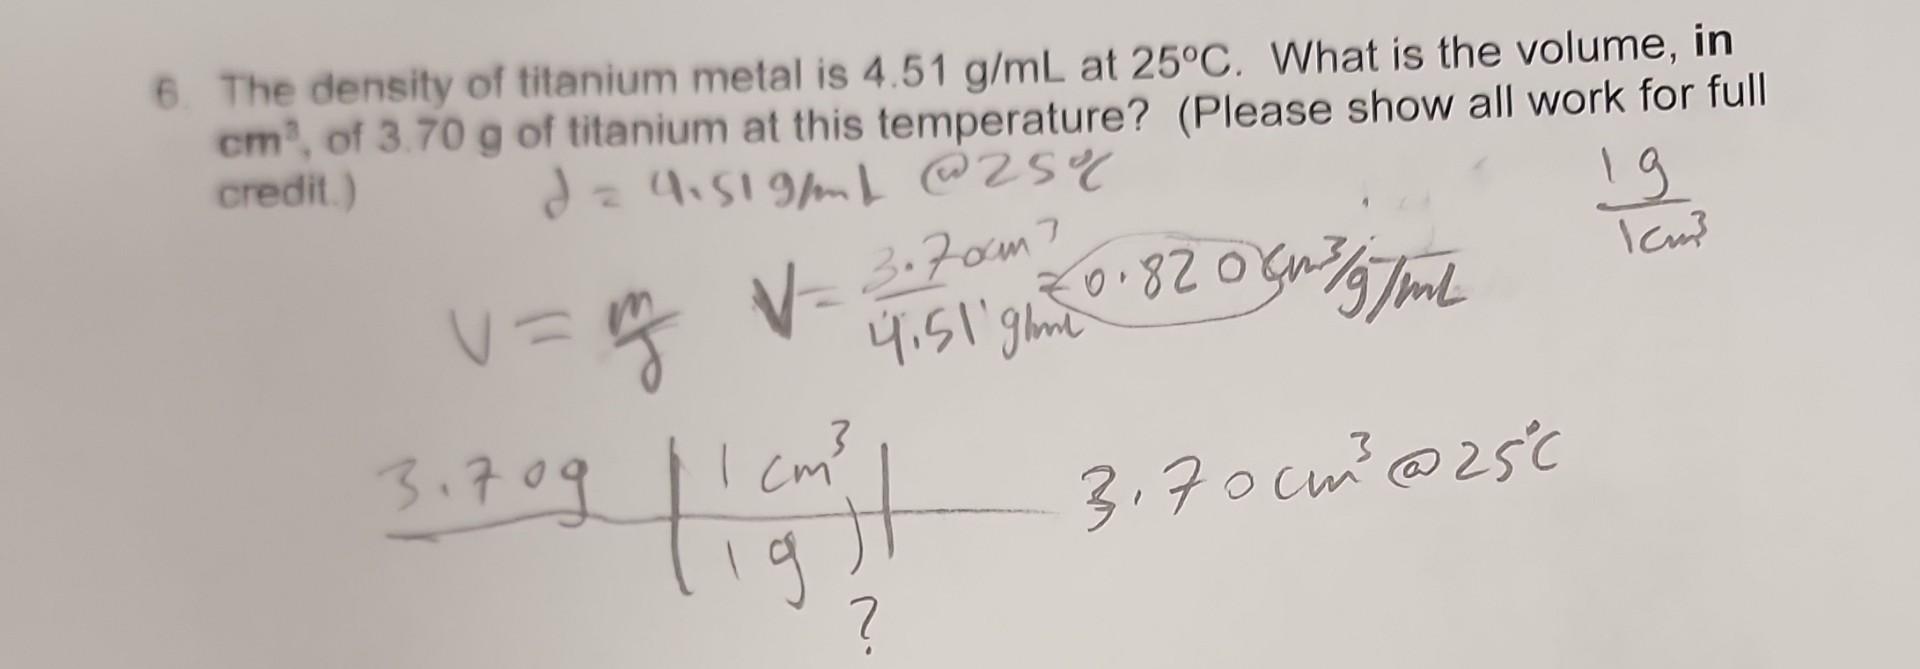 6. The density of titanium metal is 4.51 g/mL at 25ºC. What is the volume, in
cm³, of 3.70 g of titanium at this temperature? (Please show all work for full
credit.)
d = 4.51 g/mL @25°C
1 g
1 cm³
V = m/d
V = 3.70cm³ / 4.51 g/mL = 0.820 cm³/g/mL
3.70g | 1 cm³ |
1 g
3.70 cm³ @ 25°C
?